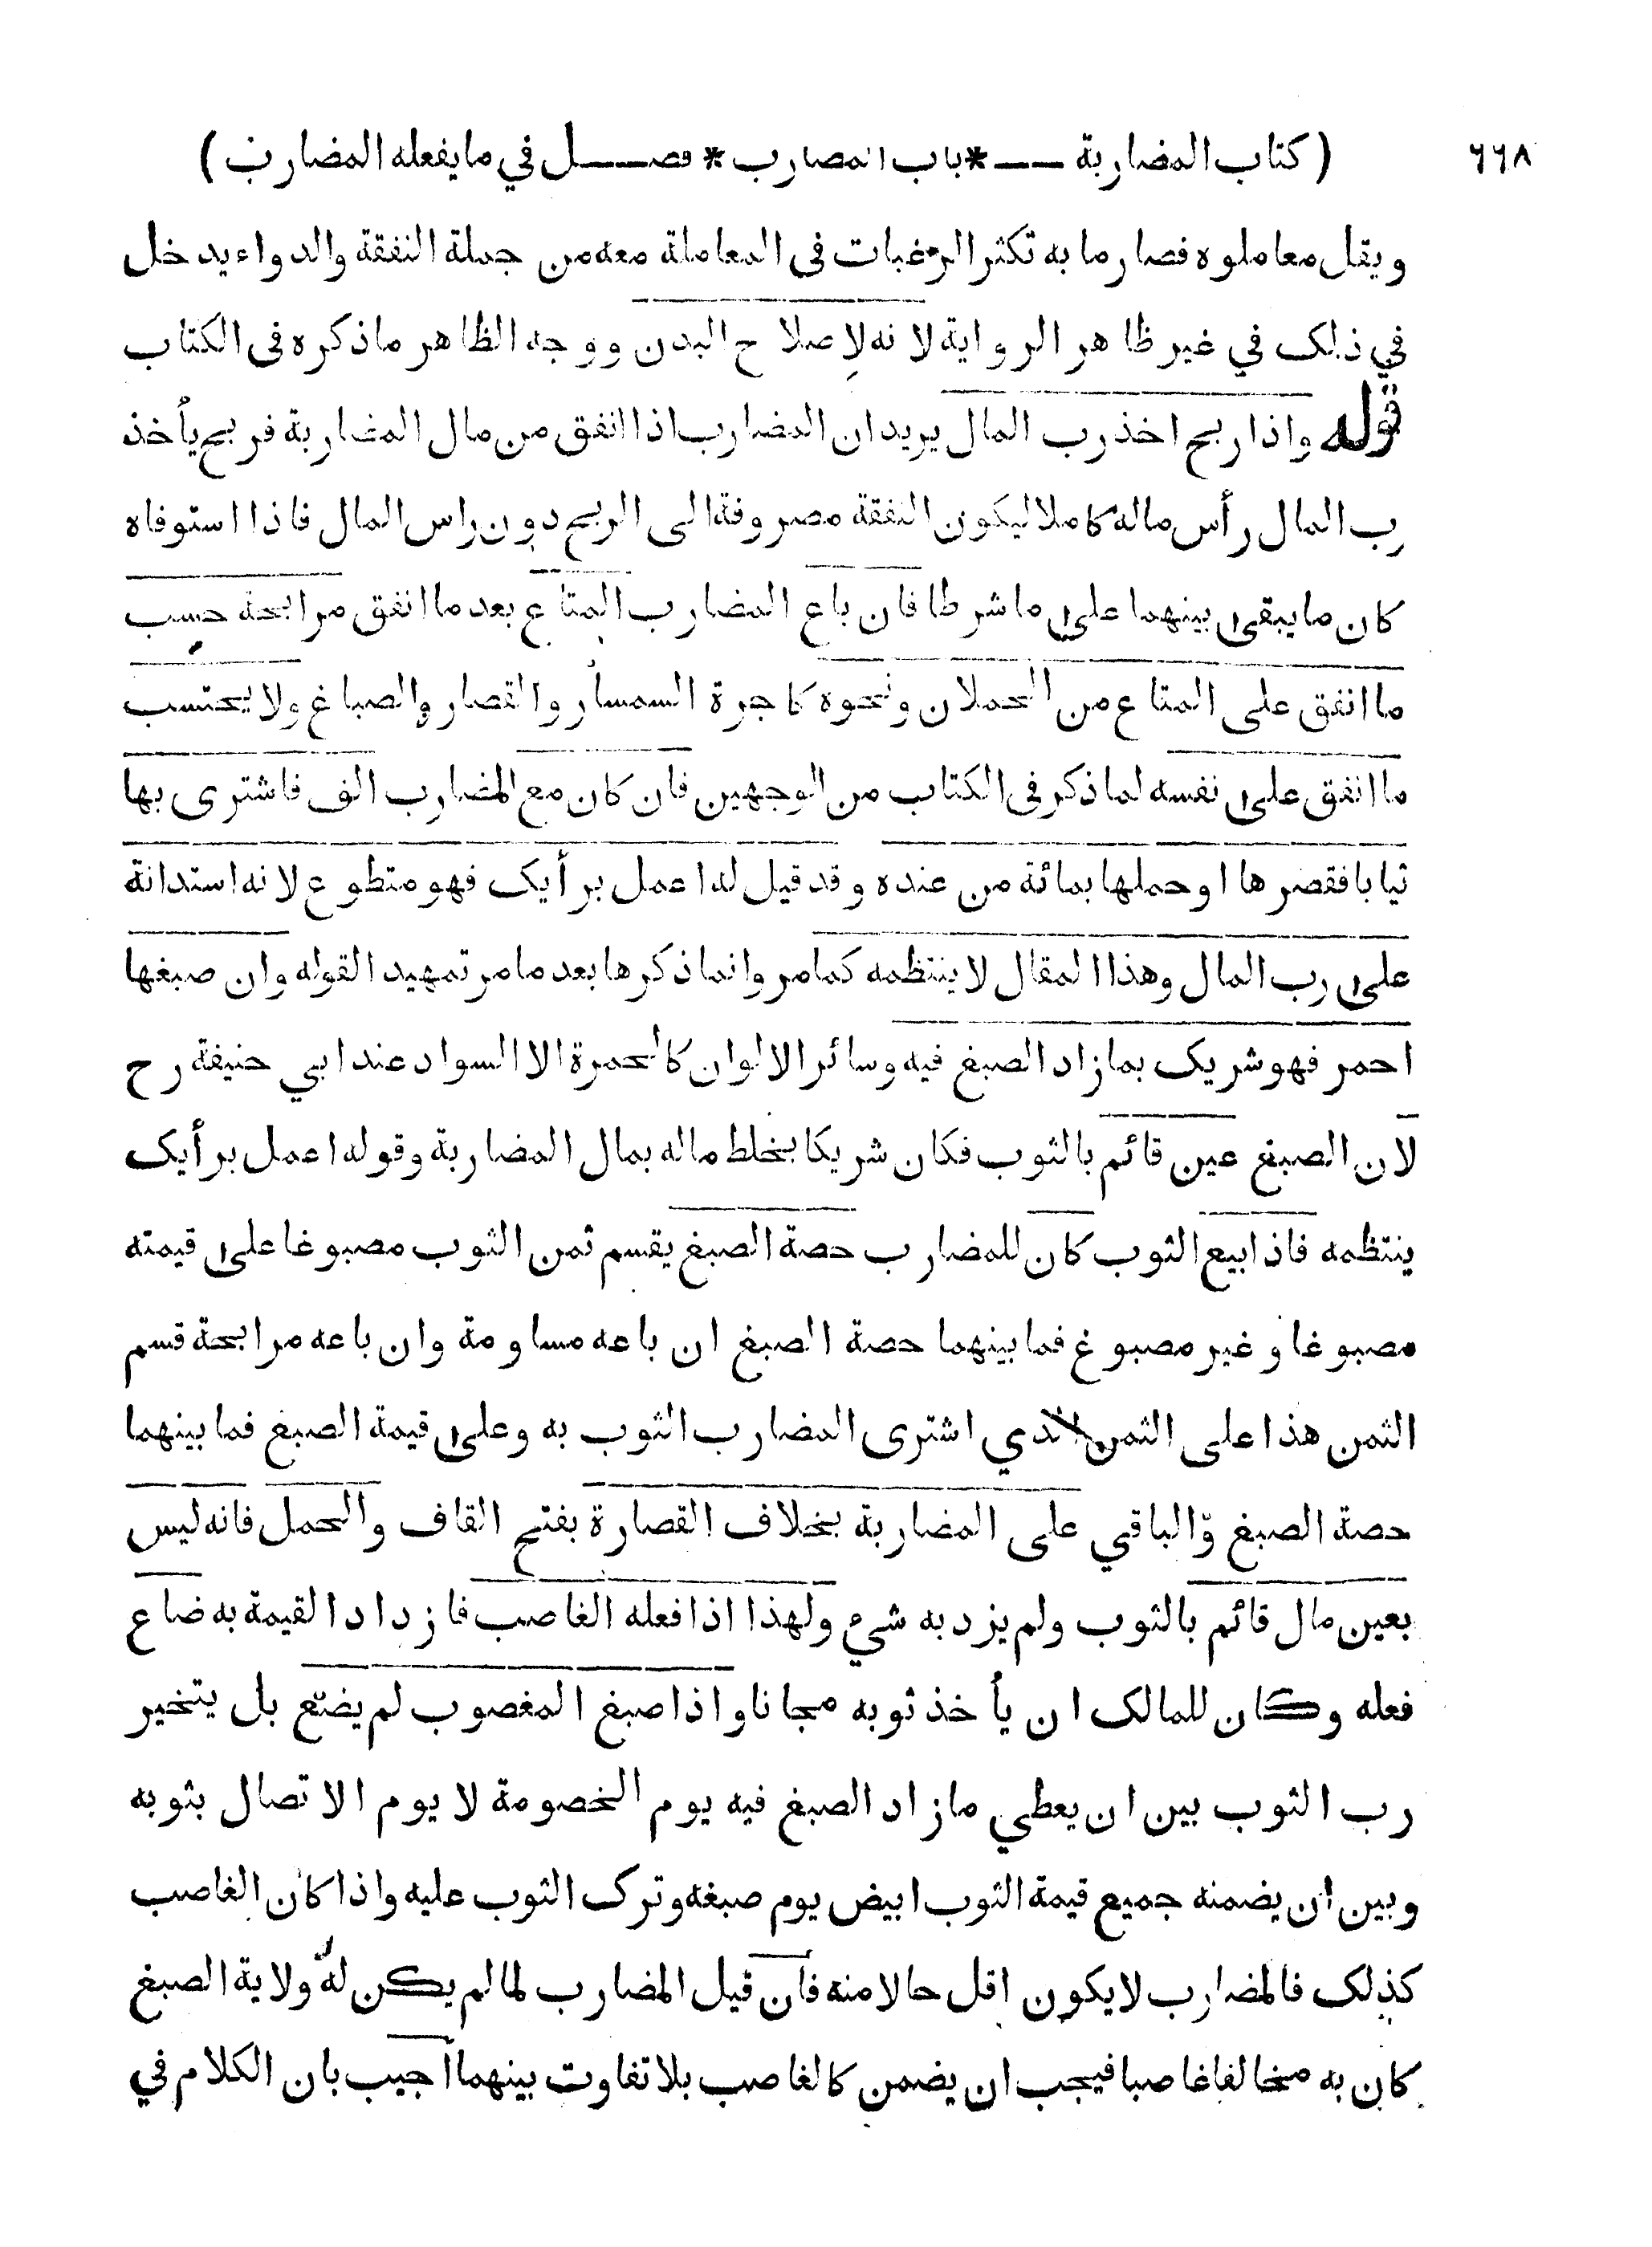 ( كتاب المضاربة — * باب المضارب * فصــل في ما يفعله المضارب ) ٦٦٨
ويقل معاملوه فصار ما به تكثر الرغبات فى المعاملة معه من جملة النفقة والدواء يدخل
في ذلك في غير ظاهر الرواية لانه لاصلاح البدن ووجه الظاهر ما ذكره فى الكتاب
قوله واذا ربح اخذ رب المال يريد ان المضارب اذا انفق من مال المضاربة فربح يأخذ
رب المال رأس ماله كاملا ليكون النفقة مصروفة الى الربح دون راس المال فاذا استوفاه
كان ما يبقى بينهما على ما شرطا فان باع المضارب المتاع بعد ما انفق مرابحة حسب
ما انفق على المتاع من الحملان ونحوه كاجرة السمسار والقصار والصباغ ولا يحتسب
ما انفق على نفسه لما ذكر فى الكتاب من الوجهين فان كان مع المضارب الف فاشترى بها
ثيابا فقصرها او حملها بمائة من عنده وقد قيل له اعمل برأيك فهو متطوع لانه استدانة
على رب المال وهذا المقال لا ينتظمه كما مر وانما ذكرها بعد ما مر تمهيدا لقوله وان صبغها
احمر فهو شريك بما زاد الصبغ فيه وسائر الالوان كالحمرة الا السواد عند ابي حنيفة رح
لان الصبغ عين قائم بالثوب فكان شريكا بخلط ماله بمال المضاربة وقوله اعمل برأيك
ينتظمه فاذا بيع الثوب كان للمضارب حصة الصبغ يقسم ثمن الثوب مصبوغا على قيمته
مصبوغا وغير مصبوغ فما بينهما حصة الصبغ ان باعه مساومة وان باعه مرابحة قسم
الثمن هذا على الثمن الذي اشترى المضارب الثوب به وعلى قيمة الصبغ فما بينهما
حصة الصبغ والباقي على المضاربة بخلاف القصارة بفتح القاف والحمل فانه ليس
بعين مال قائم بالثوب ولم يزد به شيء ولهذا اذا فعله الغاصب فازداد القيمة به ضاع
فعله وكان للمالك ان يأخذ ثوبه مجانا واذا صبغ المغصوب لم يضع بل يتخير
رب الثوب بين ان يعطي ما زاد الصبغ فيه يوم الخصومة لا يوم الاتصال بثوبه
وبين ان يضمنه جميع قيمة الثوب ابيض يوم صبغه وترك الثوب عليه واذا كان الغاصب
كذلك فالمضارب لا يكون اقل حالا منه فان قيل المضارب لما لم يكن له ولاية الصبغ
كان به مخالفا غاصبا فيجب ان يضمن كالغاصب بلا تفاوت بينهما اجيب بان الكلام في